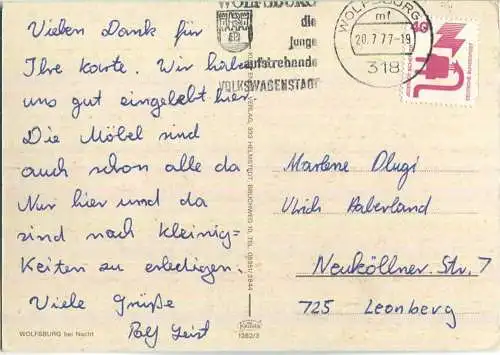 Vielen Dank für
Ihre Karte. Wir haben
uns gut eingelebt hier.
Die Möbel sind
auch schon alle da
Nur hier und da
sind noch Kleinig-
keiten zu erledigen.
Viele Grüße
Rolf Leist
WOLFSBURG bei Nacht
WOLFSBURG
die
junge
aufstrebende
VOLKSWAGENSTADT
WOLFSBURG
mf
20.7.77-19
318
40
DEUTSCHE BUNDESPOST
Marlene Dlugi
Ulrich Haberland
Neuköllner. Str. 7
725 Leonberg
Krüger
1262/3